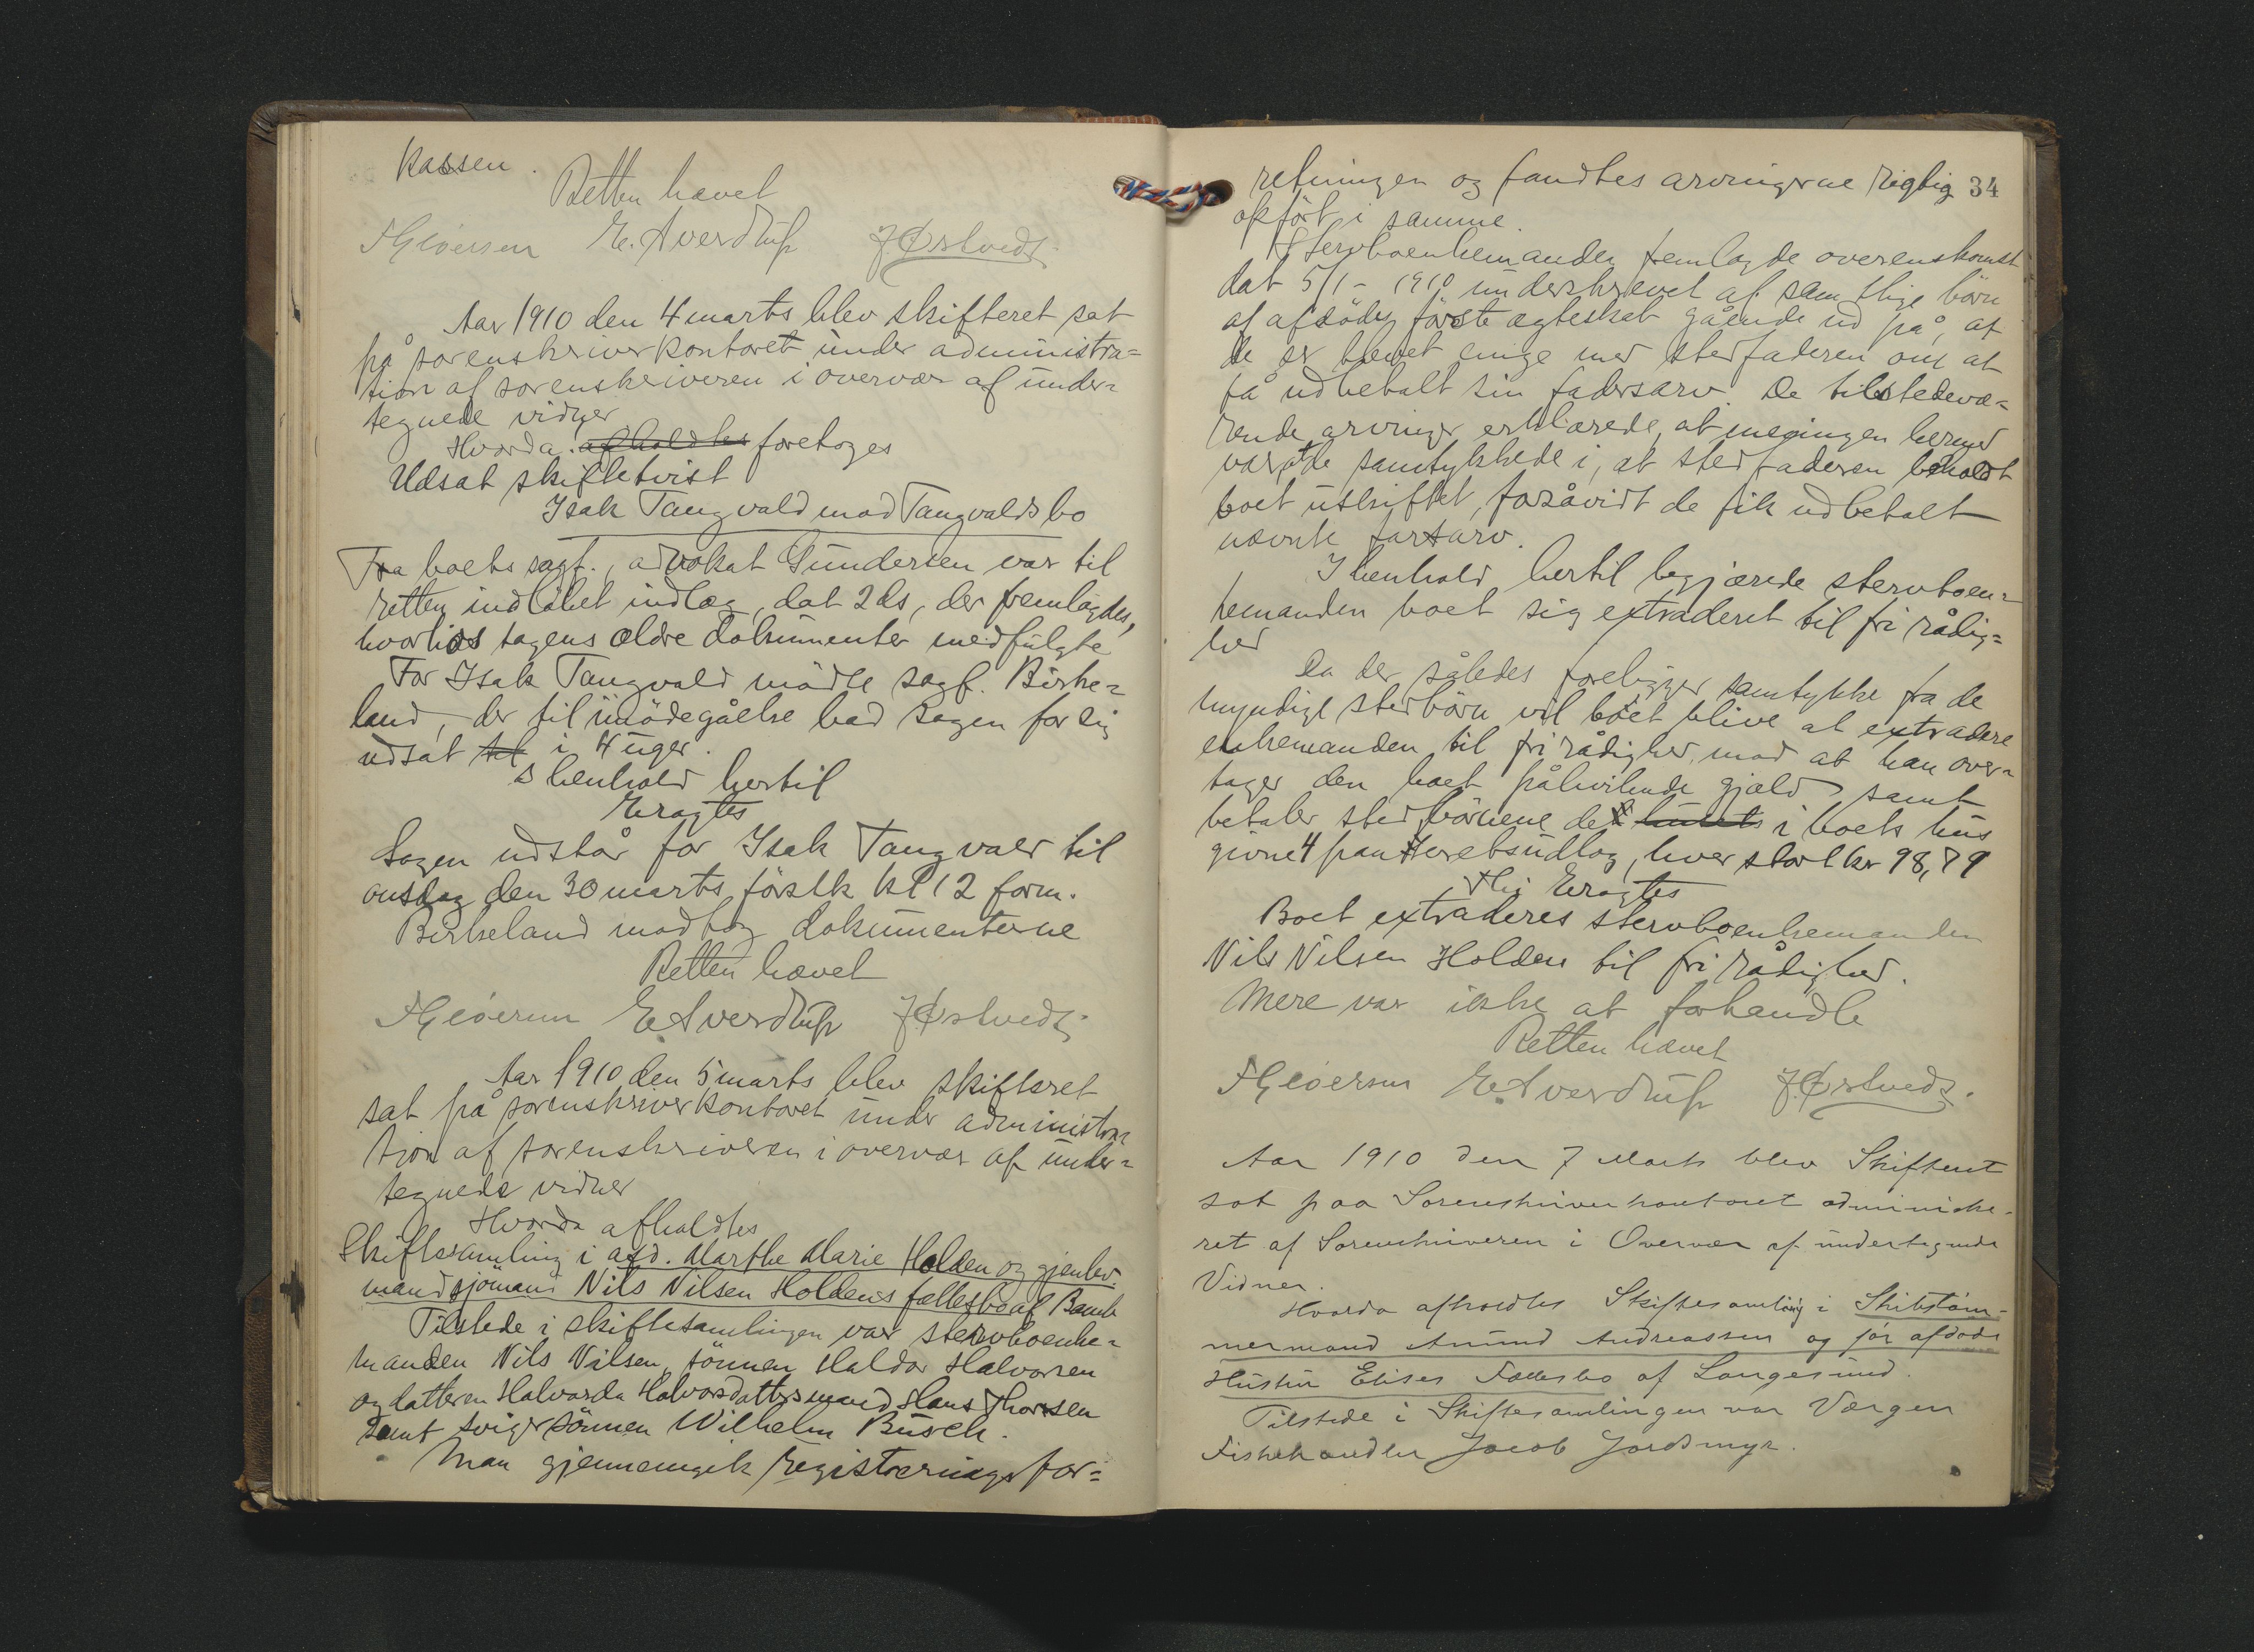 Kassen.
Retten hævet
E. Sverdrup J Østvedt
Aar 1910 den 4 marts blev skifteret sat
på sorenskriverkontoret under administra=
tion af sorenskriveren i overvær af under=
tegnede vidner
Hvorda afholdtes foretoges
Udsat skiftetvist
Isak Tangvald mod Tangvalds bo
Fra boets sagf., advokat Gundersen var til
retten indløbet indlæg, dat 2 ds, der fremlagdes,
hvorhos sagens ældre dokumenter medfulgte
For Isak Tangvald mödte sagf. Birke=
land, der til imödegåelse bad sagen for sig
udsat til i 4 uger.
I henhold hertil
Eragtes
Sagen udstår for Isak Tangvald til
onsdag den 30 marts förstk kl 12 form.
Birkeland modtog dokumenterne
Retten hævet
E. Sverdrup J Østvedt
Aar 1910 den 5 marts blev skifteret
sat på sorenskriverkontoret under administra=
tion af sorenskriveren i overvær af under=
tegnede vidner
Hvorda afholdtes
Skiftesamling i afd. Marthe Marie Holden og gjenlev.
mand sjömand Nils Nilsen Holdens fællesbo af Bamle
Tilstede i skiftesamlingen var stervboenke=
manden Nils Nilsen, sönnen Haldor Halvorsen
og datteren Halvorda Halvorsdatters mand Hans Thorsen
samt svigersönnen Wilhelm Busch.
Man gjennemgik registreringsfor=
retningen og fandtes arvingerne rigtig 34
opfört i samme.
Stervboenkemanden fremlagde overenskomst
dat 5/1 - 1910 underskrevet af samtlige börn
af afdödes förste ægteskab gående ud på, at
de er blevet enige med stedfaderen om at
få udbetalt sin fadersarv. De tilstedevæ=
rende arvinger erklærede, at meningen hermed
var, at de samtykkede i, at stedfaderen beholdt
boet uskiftet, forsåvidt de fik udbetalt
nævnte farsarv.
I henhold hertil begjærede stervboen=
kemanden boet sig extraderet til fri rådig=
hed
Da der således foreligger samtykke fra de
myndige stedbörn vil boet blive at extradere
enkemanden til fri rådighed mod at han over=
tager den boet påhvilende gjæld samt
betaler stedbörnene de husets i boets hus
givne 4 panteretsudlæg, hver stort kr 98,79
Thi Eragtes
Boet extraderes stervboenkemanden
Nils Nilsen Holden til fri rådighed.
Mere var ikke at forhandle
Retten hævet
E. Sverdrup J. Østvedt.
Aar 1910 den 7 Marts blev Skifteret
sat paa Sorenskriverkontoret administre-
ret af Sorenskriveren i Overvær af undertegnede
Vidner.
Hvorda afholdtes Skiftesamling i Skibstøm-
mermand Amund Andreassen og før afdøde
Hustru Elises Fællesbo af Langesund.
Tilstede i Skiftesamlingen var Værgen
Fiskehandler Jacob Jordsmyr.